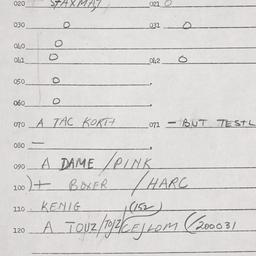 020 STAXMAT 021 0
030 0 031 0
040 0
041 0 042 0
050 0
060 0
070 A TAC KORTH 071 - BUT TESTL
080 —
090 A DAME / PINK
100 )+ BOXER / HARC
110 KENIG (152)
120 A TOUZ/TOJZ CEJLOM (/200031